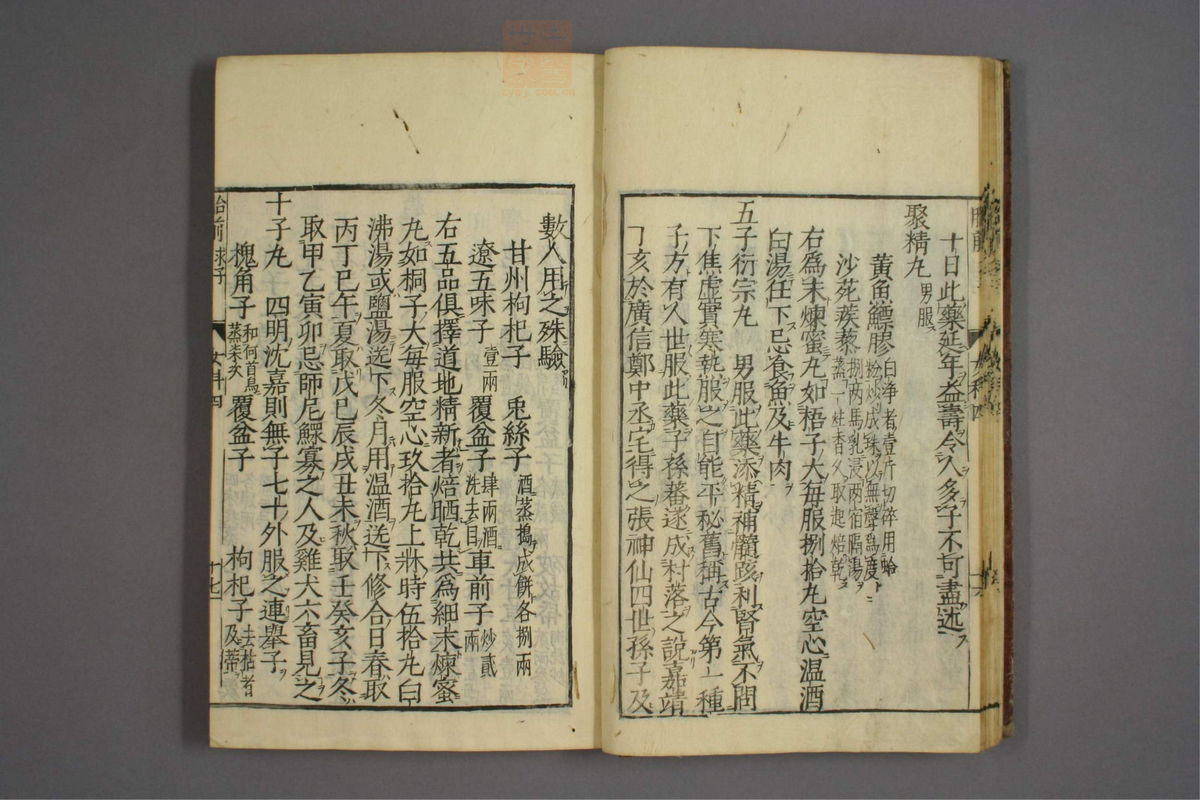 十日此藥延年益壽令人多子不可盡述
聚精丸 男服
黃魚鰾膠 白淨者壹斤切碎用蛤粉炒成珠以無聲為度
沙苑蒺藜 捌兩馬乳浸兩宿隔湯蒸一炷香久取起焙乾
右爲末煉蜜丸如梧子大每服捌拾丸空心溫酒
白湯任下忌食魚及牛肉
五子衍宗丸 男服此藥添精補髓疏利腎氣不問
下焦虛實寒熱服之自能平秘舊稱古今第一種
子方有人世服此藥子孫蕃遂成村落之說嘉靖
丁亥於廣信鄭中丞宅得之張神仙四世孫子及
數人用之殊驗
甘州枸杞子 兎絲子 酒蒸搗成餅各捌兩
遼五味子 壹兩 覆盆子 肆兩酒洗去目 車前子 炒貳兩
右五品俱擇道地精新者焙晒乾共爲細末煉蜜
丸如桐子大每服空心玖拾丸上牀時伍拾丸白
沸湯或鹽湯送下冬月用溫酒送下修合日春取
丙丁巳午夏取戊巳辰戌丑未秋取壬癸亥子冬
取甲乙寅卯忌師尼鰥寡之人及雞犬六畜見之
十子丸 四明沈嘉則無子七十外服之連舉子
槐角子 和何首烏蒸柒次 覆盆子 枸杞子 去枯者及蒂
女科四
十七